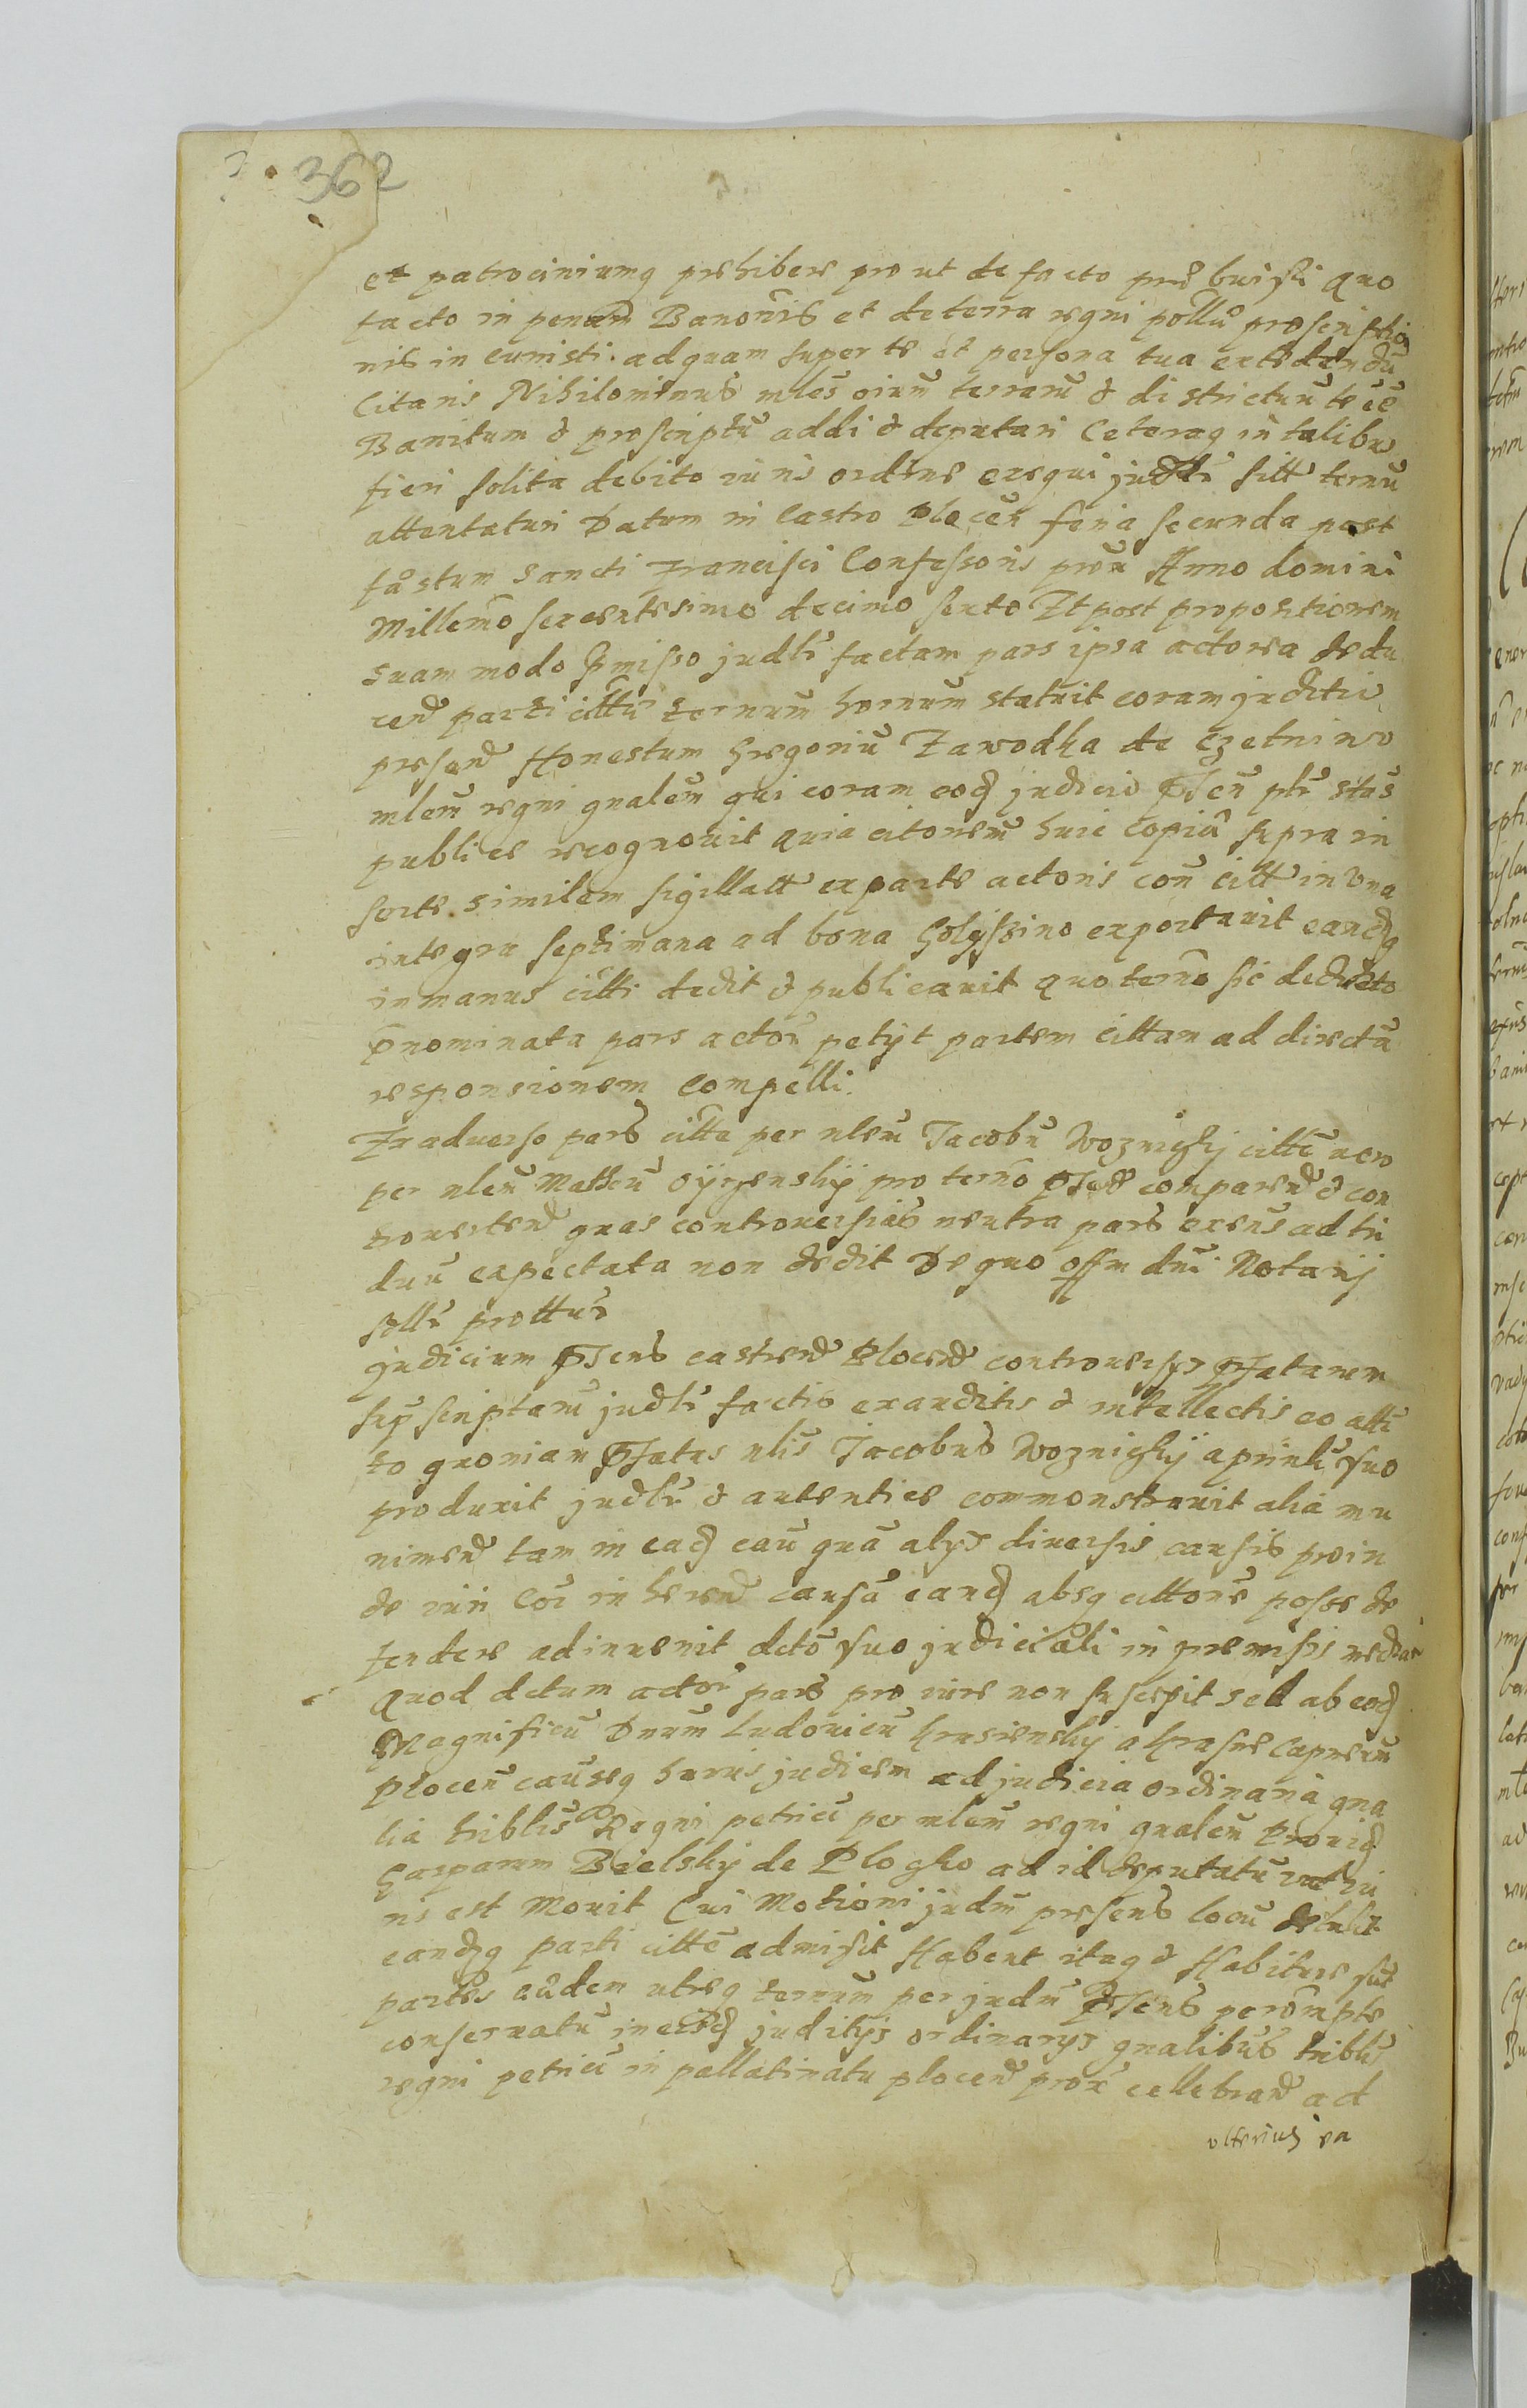 362
et patrociniumq prehibere pro ut de facto prebuisti quo
facto in penam Banonis et de terra regni pollu proscriptio
nis in curristi ad quam super te et persona tua extedendu
Citaris Nihilominus mles oium terraru & districtuu te ee
Banitum & proscriptu addi & deputari Ceteraq in talibus
fieri solita debito iuris ordine exequi judlr sitt termu
attentaturi Datum in Castro Plocen feria secunda post
festum Sancti Francisci Confessoris prox Anno domini
Millemo sexcentesimo decimo sexto Et post propositionem
suam modo pmisso judlr factam pars ipsa actorea dedu
cen parti citte termum hornum statuit coram juditio
presen Honestum Gregoriu Zawodka de Czetnino
mlem regni gnalem qui coram eod judicio pnti ptr stas
publice recognouit quia citonem huic copia supra in
serte similem sigillatt ex parte actoris con citt in vna
integra septimana ad bona Golyssino exportauit eandq
in manus citti dedit & publicauit quo termo sic deducto
pnominata pars actor petyt partem cittam ad directa
responsionem compelli.
Ex aduerso pars citta per nlem Jacobu Woznicky citte acro
per nlem Matheu oyrzensky pro termo comparen & con
trouerten quas controuersias neutra pars exens ad tri
duu expectata non dedit De quo offm dni Notarij
sollr prottur
judicium pns castren Plocen controuersys pfatarum
sup scriptaru judlr factis exauditis & intellectis eo atte
to quoniam pfatus nlis Jacobus Woznicky a prinli suo
produxit judlr & autentice commonstrauit alia mu
nimen tam in ead cau qua alys diuersis causis proin
de viri Coi in heren causa eand absq cittone posse de
tendere adinuenit dcto suo judiciali in premissis median
Quod dctum actor pars pro iure non suscepit sed ab eod
Magnificu Dnum Ludouicu Krasiensky a Krasne Capneum
Plocen causeq huius judicem ad judicia ordinaria gna
lia triblis Regni petricu per mlem regni gnalem Prouid
Gasparum Bielsky de Plocko ad id deputatu vt iu
ris est Mouit Cui Motioni judm presens locu detulit
eandq parti citte admisit Habent itaq & Habiture sut
partes eadem utreq termum per judm pns perempte
conseruatu in eisd juditys ordinarys gnalibus triblis
regni petricu in pallatinatu plocen prox cellebran ad
vlterius ea